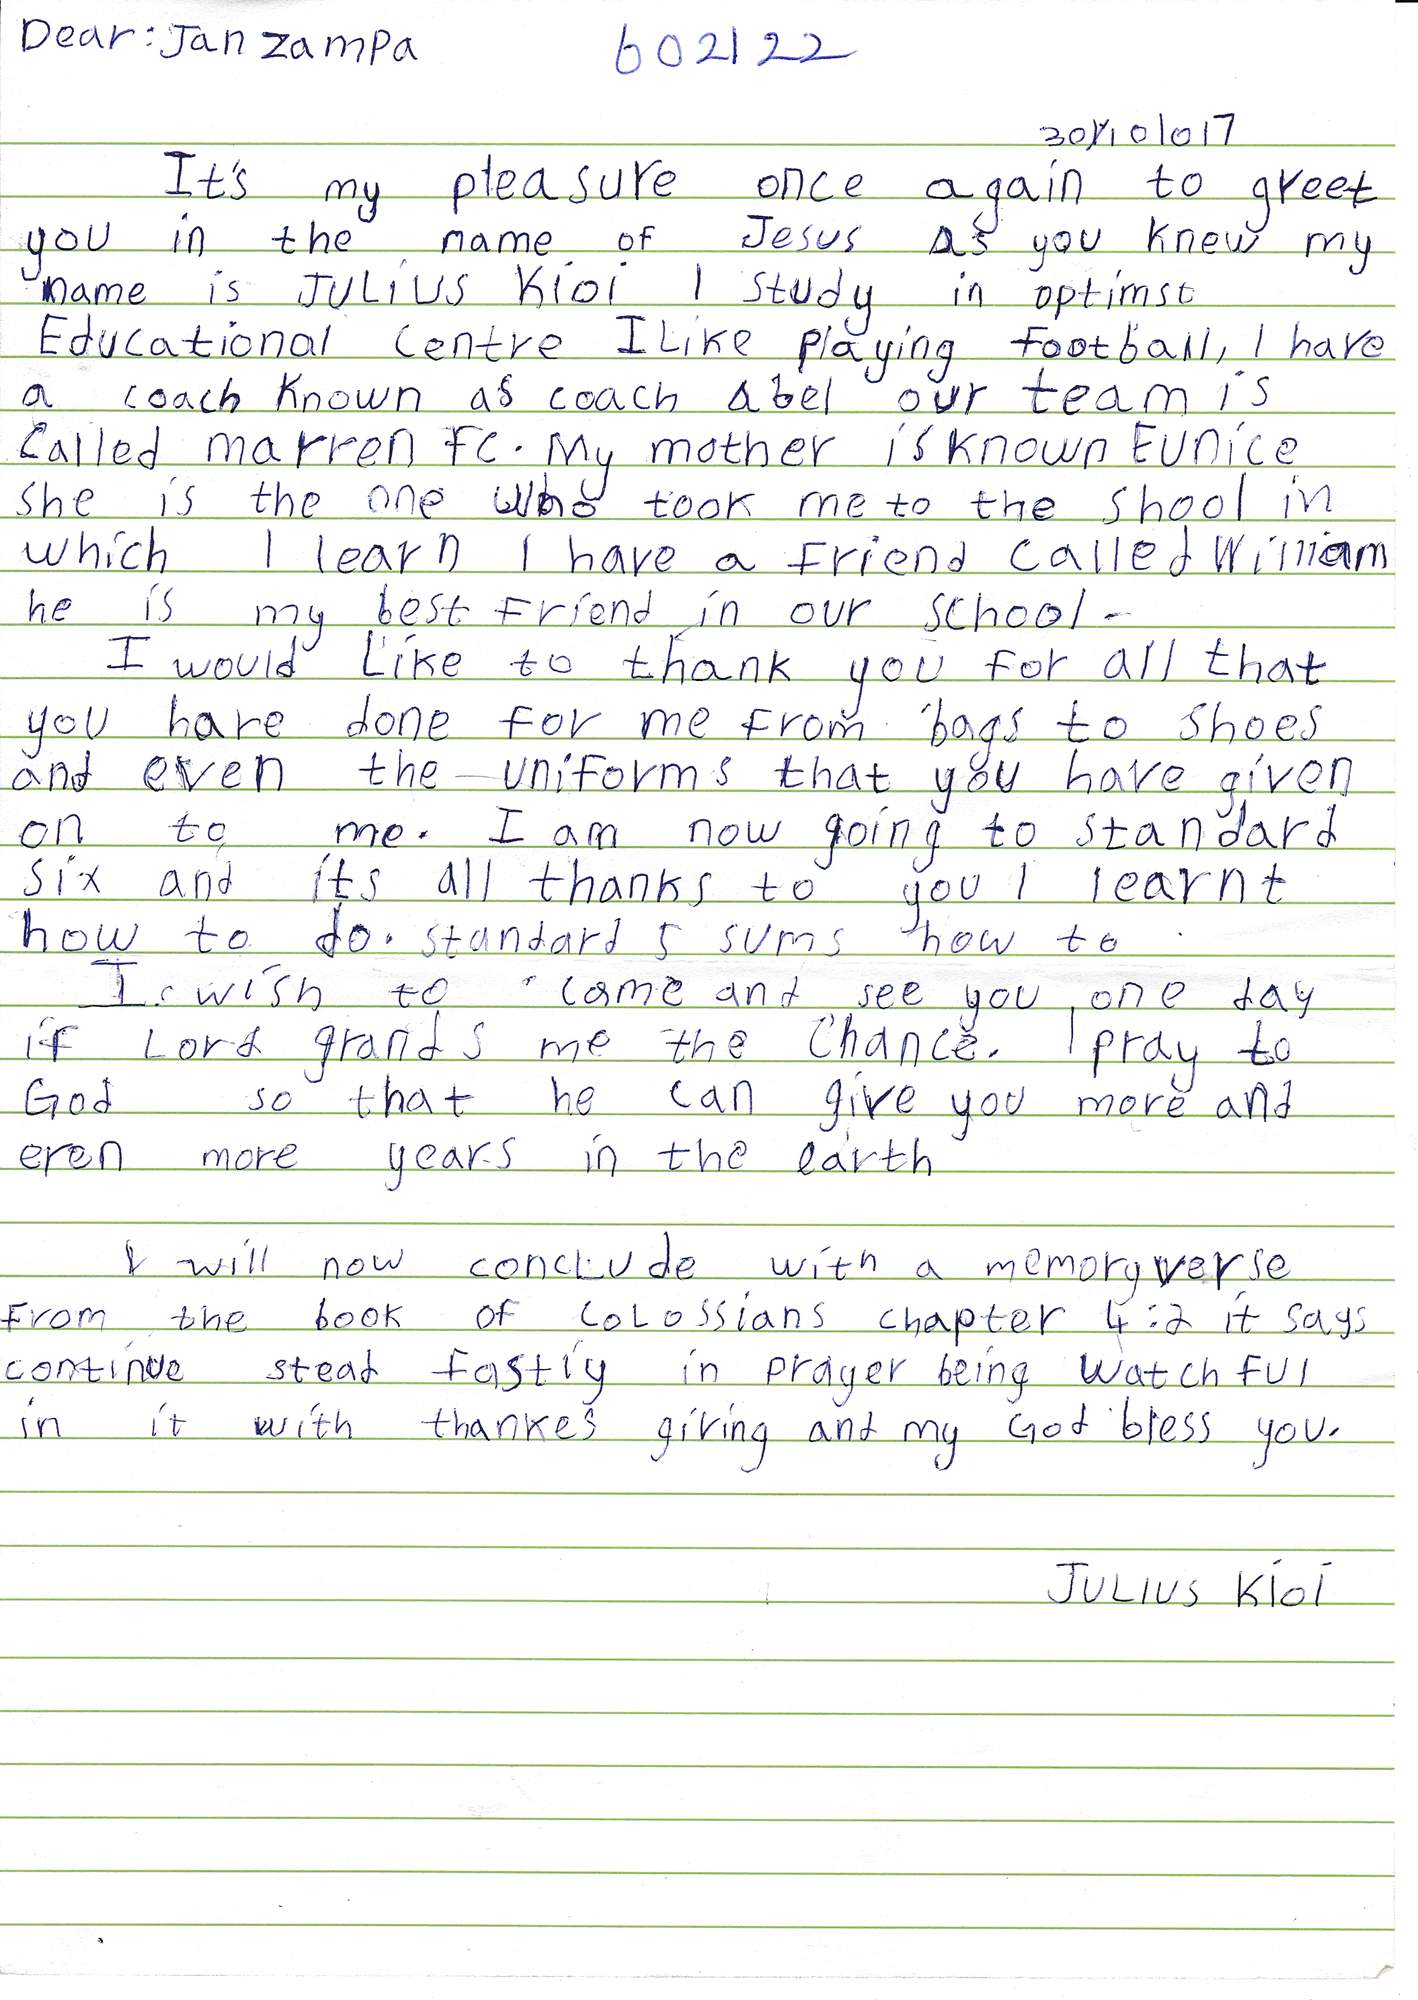 Dear: Jan zampa 602122
30/10/017
It's my pleasure once again to greet
you in the name of Jesus As you knew my
name is JULIUS KIOI I study in optimst
Educational Centre I Like playing football, I have
a coach known as coach Abel our team is
Called marren FC. My mother is known EUNICE
she is the one who took me to the shool in
which I learn I have a friend called William
he is my best friend in our school.
I would Like to thank you for all that
you have done for me from bags to shoes
and even the uniforms that you have given
on to me. I am now going to standard
six and its all thanks to you I learnt
how to do. standard 5 sums how to
I wish to come and see you one day
if Lord grands me the Chance. I pray to
God so that he can give you more and
even more years in the earth
I will now conclude with a memory verse
From the book of COLOSSIANS chapter 4:2 it says
continue stead fastly in prayer being watch ful
in it with thankes giving and my God bless you.
JULIUS KIOI